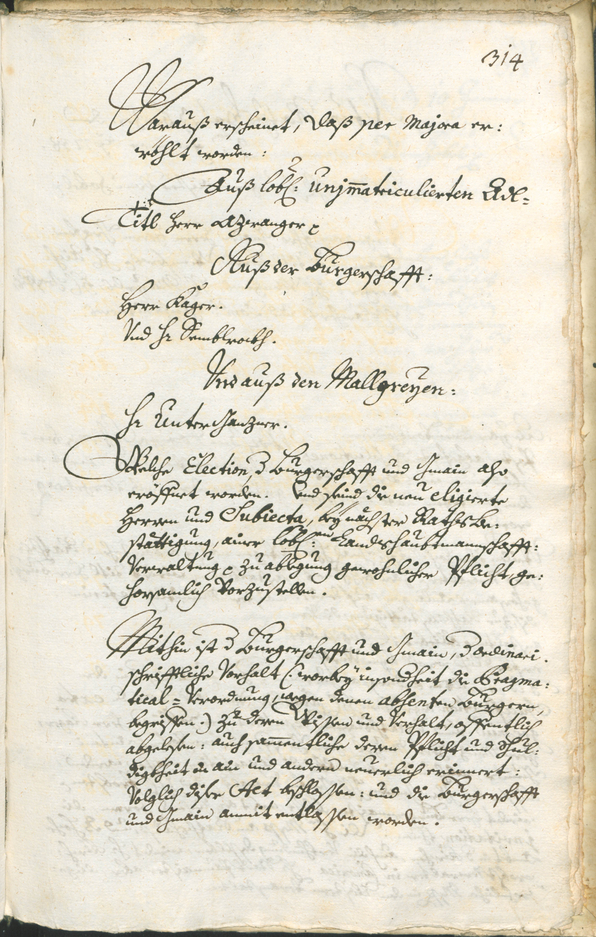 314
Warauß erscheinet, daß per Majora er:
wöhlt worden:
Auß löbl: unjm̄atriculierten Adl=
Titl Herr Azwanger
Auß der Burgerschafft:
Herr Kager.
Und h: Semblrockh.
Und auß den Mallgreyen:
h: Unter Ganzner.
Welche Election d Burgerschafft und Gmain also
eröffnet worden. Und seind die neu eligierte
Herren und Subiecta, bey nächster Raths Be:
stättigung, ainer löbl: Landtshaubtmanschafft:
Verwaltung zu ablegung gewohnlicher Pflicht, ge:
horsamlich Vorzustellen.
Mithin ist d Burgerschafft und Gmain, d ordinari.
schrifftliche Vorhalt (: worbey insonderheit die Pragma:
tical= Verordnung, wegen denen absenten Burgern,
begriffen :) zu deren Wissen und Verhalt, offentlich
abgelesen: auch sammentliche deren Pflicht und Schul:
digkheit in ain und andern neuerlich erinnert:
Volglich diser Act beschlossen: und die Burgerschafft
und Gmain anmit entlassen worden.